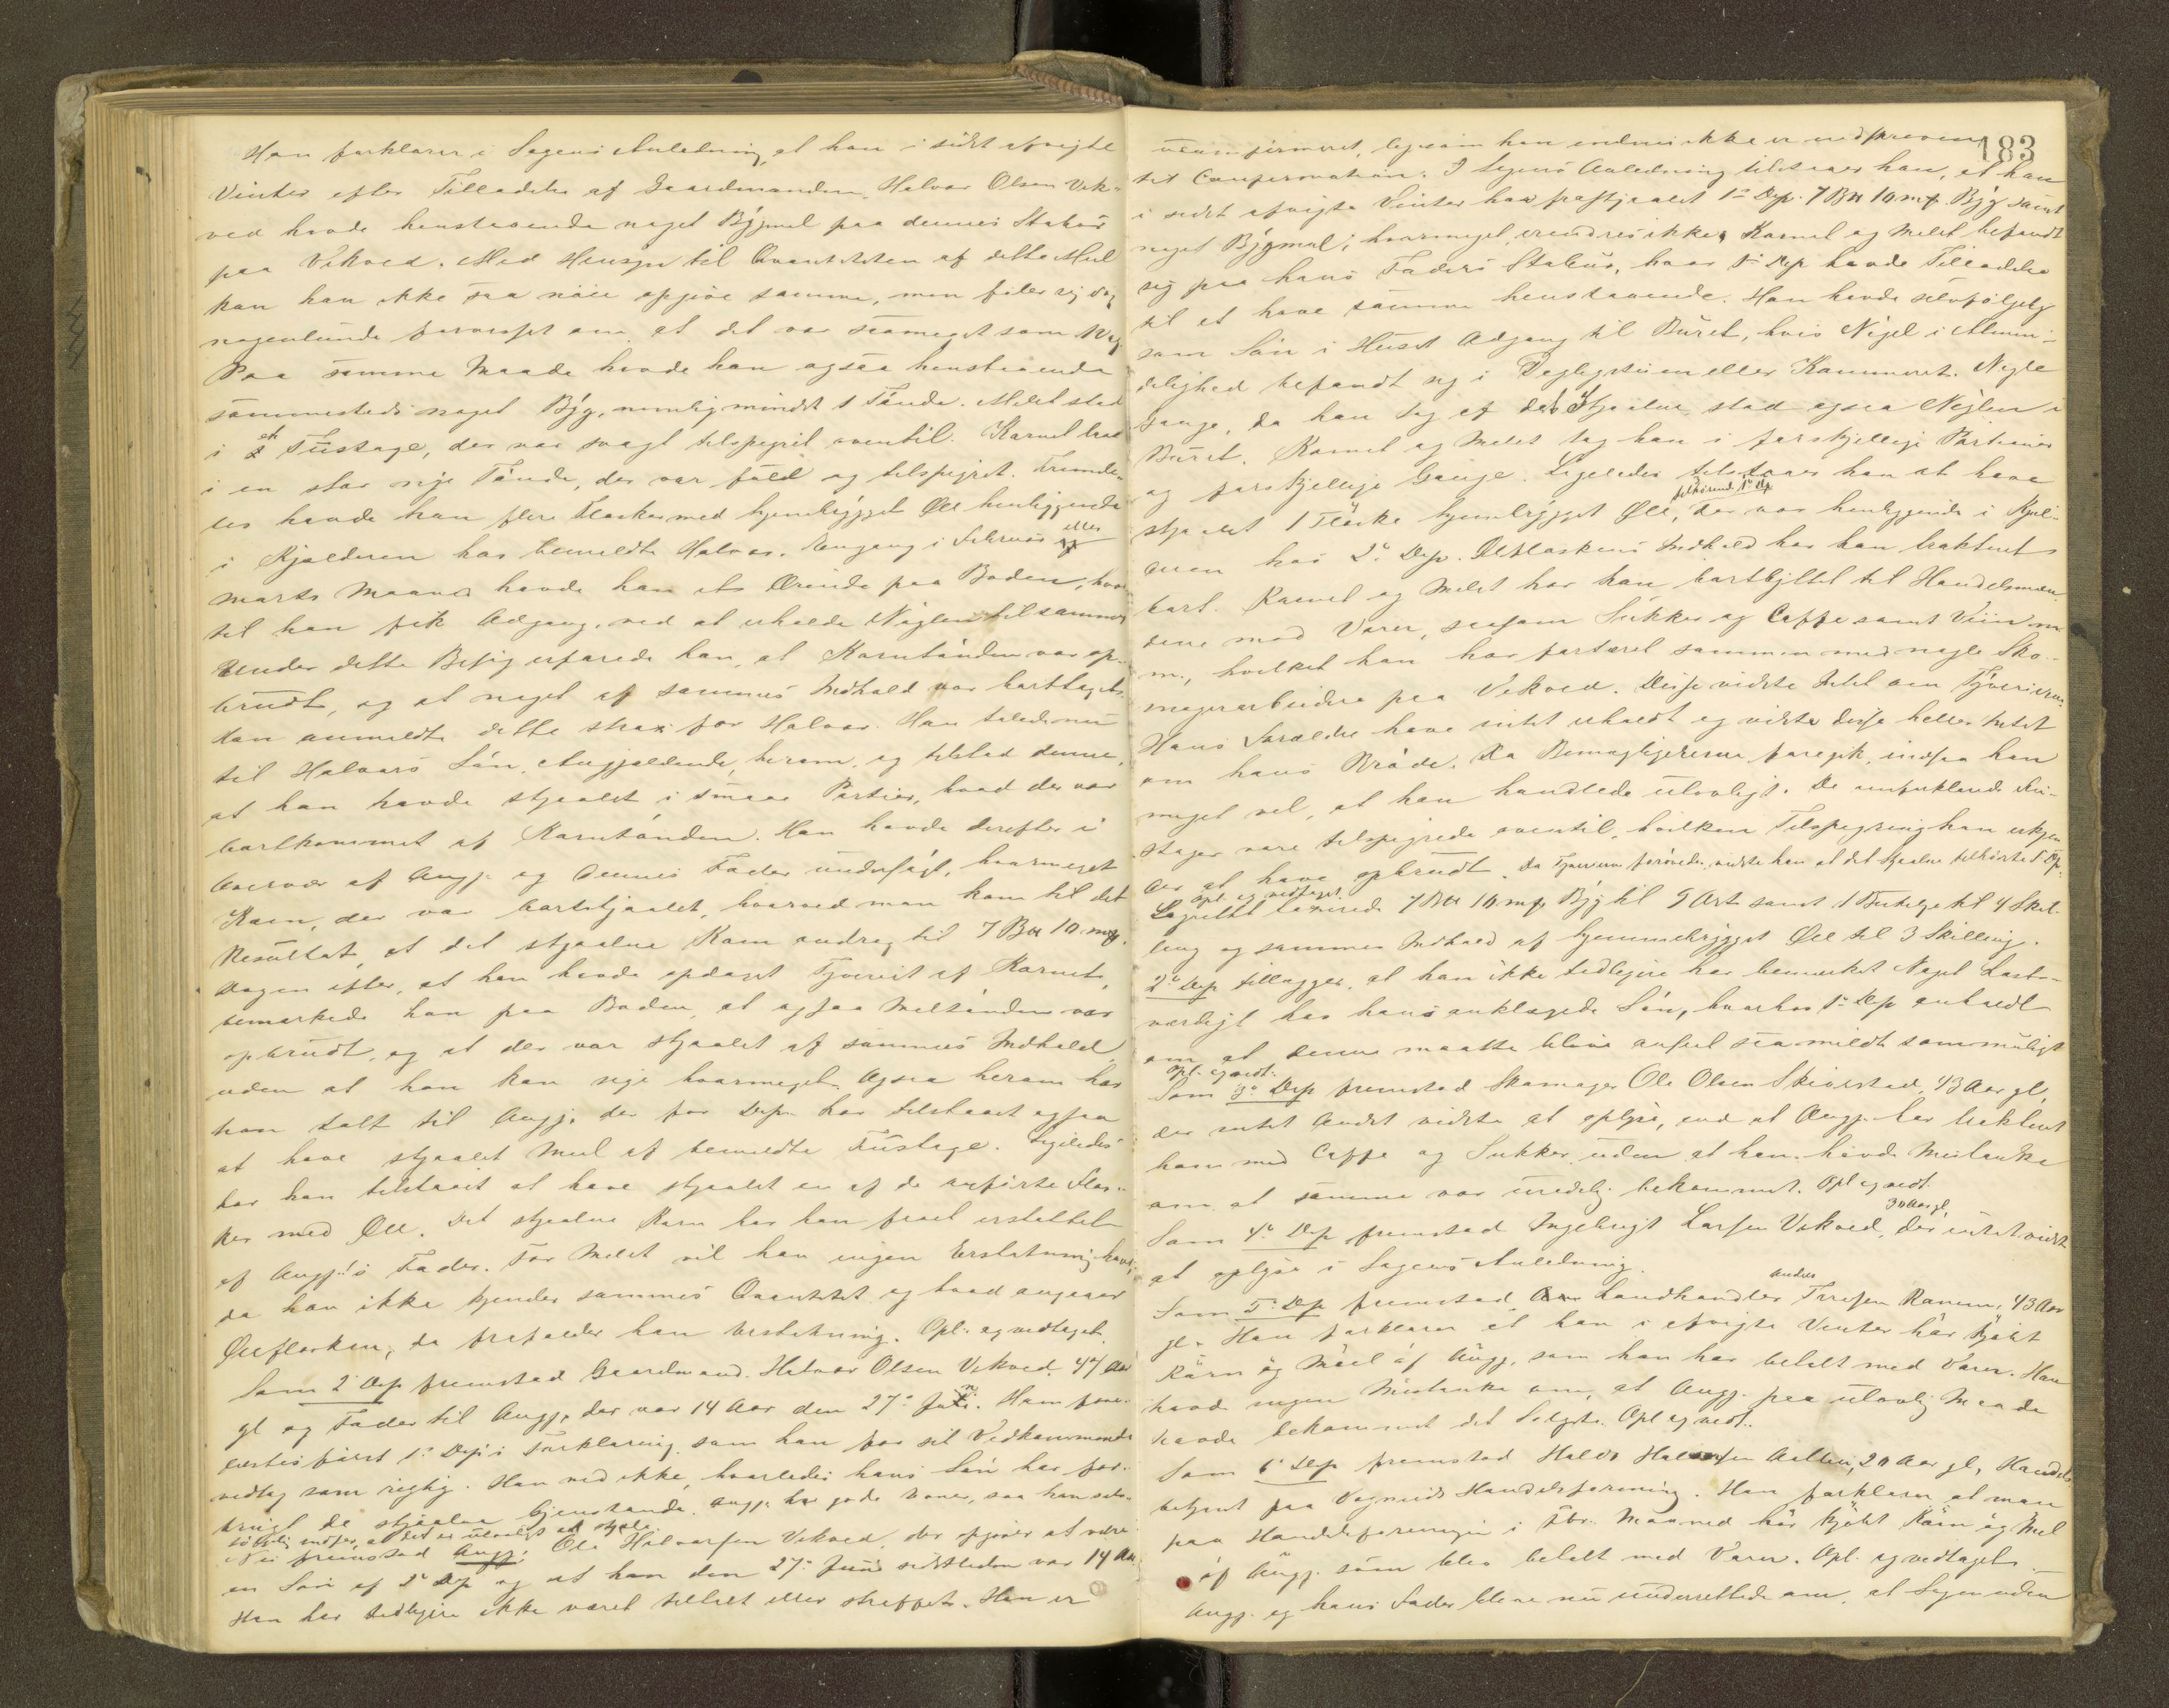 Han forklarer i Sagens Anledning, at han i sidst afvigte
Vinter efter Tilladelse af Gaardmanden Halvor Olsen Vek-
ved havde henstaaende noget Bygmel paa dennes Stabur
paa Vekved. Med Hensyn til Qvantiteten af dette Mel
kan han ikke saa nøie opgive samme, men føler sig dog
nogenlunde forvisset om, at det var saameget som 1 Vog
Paa samme Maade havde han ogsaa henstaaende
sammesteds noget Byg, nemlig mindst 1 Tønde. Melet stod
i et Fustage, der var svagt tilspigret oventil. Kornet
i en stor ny Tønde, der var fuld og tilspigret. Fremde-
les havde han flere Flasker med hjembrygget Øll henliggende
i Kjælderen hos bemeldte Halvor. Engang i Februar eller
Marts Maaned havde han et Ærinde paa Boden, hvor
til han fik Adgang, ved at erholde Nøglen til samme
Under dette Besøg erfarede han, at Korntønden var op-
brudt, og at noget af sammes Indhold var borttaget.
Han anmeldte dette strax for Halvor. Han talede nu
til Halvors Søn, Angjældende, herom, og tilstod denne,
at han havde stjaalet i smaa Partier, hvad der var
bortkommet af Korntønden. Han havde derefter i
Overvær af Angj. og dennes Fader undersøgt, hvormeget
Korn, der var bortstjaalet, hvorved man kom til det
Resultat, at det stjaalne Korn androg til 7 B# 10 mrk.
Dagen efter, at han havde opdaget Tyveriet af Kornet,
bemærkede han paa Boden, at ogsaa Meltønden var
opbrudt, og at der var stjaalet af sammes Indhold
uden at han kan sige hvormeget. Ogsaa herom har
han talt til Angj. der for Dep. har tilstaaet ogsaa
at have stjaalet Mel af bemeldte Fustage. Ligeledes
har han tilstaaet at have stjaalet en af de anførte Flas-
ker med Øll. Det stjaalne Korn har han faaet erstattet
af Angj.'s Fader. For Melet vil han ingen Erstatning have,
da han ikke kjender sammes Qvantitet, og hvad angaaer
Øllflasken, da frafalder han Erstatning. Opl. og vedtaget.
Som 2. Dep fremstod Gaardmand Halvor Olsen Vekved, 47 Aar
gl og Fader til Angj., der var 14 Aar den 27. Juni. Ham fore-
læstes først 1. Dep's Forklaring, som han for sit Vedkommende
vedtog som rigtig. Han ved ikke, hvorledes hans Søn har for-
brugt de stjaalne Gjenstande. Angj. har gode Evner, saa han selv-
følgelig indser, at det er ulovligt at stjæle
Nu fremstod Angj. Ole Halvorsen Vekved, der opgiver at være
en Søn af 2. Dep og at han den 27. Juni sidstleden var 14 Aar
Han har tidligere ikke været tiltalt eller straffet. Han er
183
uconfirmeret, ligesom han endnu ikke er indskreven
til Confirmation. I Sagens Anledning tilstaaer han, at han
i sidst afvigte Vinter har frastjaalet 1ste Dep. 7 B# 10 mrk Byg samt
noget Bygmel, hvormeget erindres ikke. Kornet og Melet befandt
sig paa hans Faders Stabur, hvor 1ste Dep havde Tilladelse
til at have samme henstaaende. Han havde selvfølgelig
som Søn i Huset Adgang til Buret, hvis Nøgel i Almin-
delighed befandt sig i Dagligstuen eller Kammeret. Nogle
Gange, da han tog af det Stjaalne, stod ogsaa Nøglen i
Buret. Kornet og Melet tog han i forskjellige Portioner
og forskjellige Gange. Ligeledes tilstaaer han at have
stjaalet 1 Flaske hjembrygget Øll, tilhørende 1ste Dep der var henliggende i Kjæl-
deren hos 2. Dep. Ølflaskens Indhold har han trakteret
bort. Kornet og Melet har han bortbyttet til Handelsmæn-
dene mod Varer, saasom Sukker og Caffe samt Viin m
m., hvilket han har fortæret sammen med nogle Sko-
magerarbeidere paa Vekved. Disse vidste Intet om Tyverierne
Hans Forældre have intet erholdt og vidste disse heller Intet
om hans Brøde. Da Bemægtigelserne foregik, indsaa han
meget vel, at han handlede ulovligt. De omforklarede Fu-
stager vare tilspigrede oventil, hvilken Tilspigring han erkjen
der at have opbrudt. Da Tyverierne forøvedes, vidste han at det Stjaalne tilhørte 1. Dp.
Opl. og vedtaget.
Lagrettet taxerede 7 B# 10 mrk Byg til 5 Ort samt 1 til 4 Skil-
ling og sammes Indhold af hjemmebrygget Øll til 3 Skilling.
2. Dep tillægger, at han ikke tidligere har bemærket Noget Last-
værdigt hos hans anklagede Søn, hvorhos 1. Dep anholdt
om at denne maatte blive anseet saa mildt som muligt
Opl. og vedt.
Som 3. Dep fremstod Skomager Ole Olsen Skiørstad, 43 Aar gl,
der intet Andet vidste at oplyse, end at Angj. har trakteret
ham med Caffe og Sukker, uden at han havde Mistanke
om at samme var uredelig bekommet. Opl og vedt.
Som 4. Dep fremstod Ingebrigt Larsen Vekved, 30 Aar gl, der intet vidste
at oplyse i Sagens Anledning.
Som 5. Dep fremstod Landhandler Anders Ranum, 43 Aar
gl. Han forklarer at han i afvigte Vinter har kjøbt
Korn og Meel af Angj, som han har betalt med Varer. Han
havde ingen Mistanke om, at Angj. paa ulovlig Maade
havde bekommet det Solgte. Opl og vedt.
Som 6. Dep fremstod Haldo Halvorsen, 20 Aar gl, Handels
betjent paa Vognilds Handelsforening. Han forklarer, at man
paa Handelsforeningen i Maaned har kjøbt Korn og Mel
af Angj. som blev betalt med Varer. Opl. og vedtaget.
Angj. og hans Fader bleve nu underrettede om, at Sagen uden